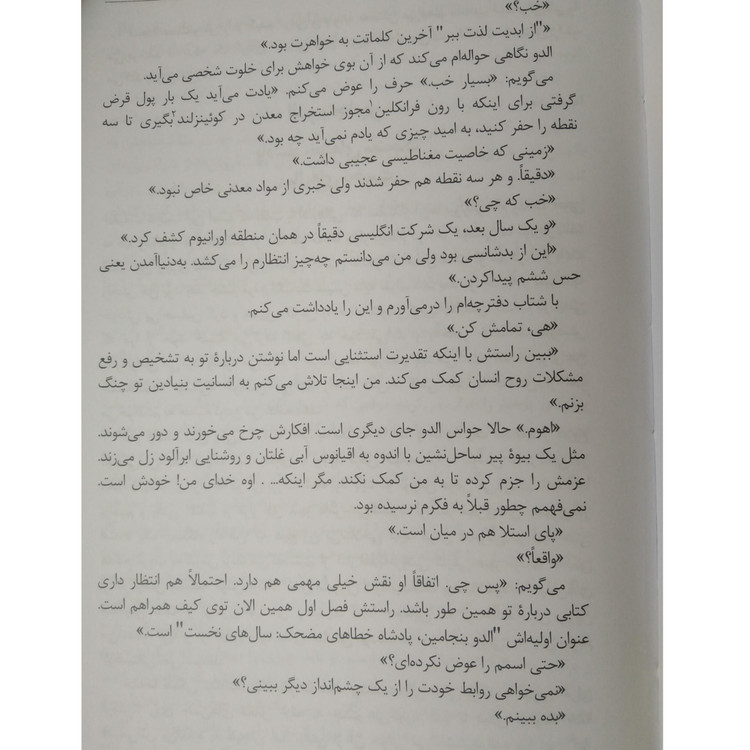 «خب؟»
«"از ابدیت لذت ببر" آخرین کلماتت به خواهرت بود.»
الدو نگاهی حواله‌ام می‌کند که از آن بوی خواهش برای خلوت شخصی می‌آید.
می‌گویم: «بسیار خب.» حرف را عوض می‌کنم. «یادت می‌آید یک بار پول قرض
گرفتی برای اینکه با رون فرانکلین۱ مجوز استخراج معدن در کوئینزلند۲ بگیری تا سه
نقطه را حفر کنید، به امید چیزی که یادم نمی‌آید چه بود.»
«زمینی که خاصیت مغناطیسی عجیبی داشت.»
«دقیقاً. و هر سه نقطه هم حفر شدند ولی خبری از مواد معدنی خاص نبود.»
«خب که چی؟»
«و یک سال بعد، یک شرکت انگلیسی دقیقاً در همان منطقه اورانیوم کشف کرد.»
«این از بدشانسی بود ولی من می‌دانستم چه‌چیز انتظارم را می‌کشد. به‌دنیاآمدن یعنی
حس ششم پیداکردن.»
با شتاب دفترچه‌ام را درمی‌آورم و این را یادداشت می‌کنم.
«هی، تمامش کن.»
«ببین راستش با اینکه تقدیرت استثنایی است اما نوشتن دربارهٔ تو به تشخیص و رفع
مشکلات روح انسان کمک می‌کند. من اینجا تلاش می‌کنم به انسانیت بنیادین تو چنگ
بزنم.»
«اهوم.» حالا حواس الدو جای دیگری است. افکارش چرخ می‌خورند و دور می‌شوند.
مثل یک بیوهٔ پیر ساحل‌نشین با اندوه به اقیانوس آبی غلتان و روشنایی ابرآلود زل می‌زند.
عزمش را جزم کرده تا به من کمک نکند. مگر اینکه... . اوه خدای من! خودش است.
نمی‌فهمم چطور قبلاً به فکرم نرسیده بود.
«پای استلا هم در میان است.»
«واقعاً؟»
می‌گویم: «پس چی. اتفاقاً او نقش خیلی مهمی هم دارد. احتمالاً هم انتظار داری
کتابی دربارهٔ تو همین طور باشد. راستش فصل اول همین الان توی کیف همراهم است.
عنوان اولیه‌اش "الدو بنجامین، پادشاه خطاهای مضحک: سال‌های نخست" است.»
«حتی اسمم را عوض نکرده‌ای؟»
«نمی‌خواهی روابط خودت را از یک چشم‌انداز دیگر ببینی؟»
«بده ببینم.»